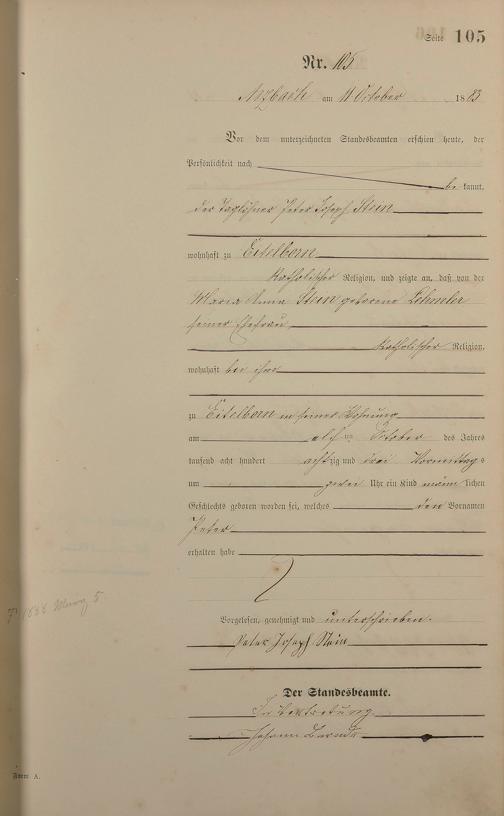 Seite 105
Nr. 105
Arzbach am 11 October 1883
Vor dem unterzeichneten Standesbeamten erschien heute, der
Persönlichkeit nach
bekannt,
der Taglöhner Peter Joseph Stein
wohnhaft zu Eitelborn
katholischer Religion, und zeigte an, daß von der
Maria Anna Stein geborene
seiner Ehefrau
katholischer Religion,
wohnhaft bei ihm
zu Eitelborn in seiner Wohnung
am elf ten October des Jahres
tausend acht hundert achtzig und drei Vormittags
um zwei Uhr ein Kind männlichen
Geschlechts geboren worden sei, welches den Vornamen
Peter
erhalten habe
Vorgelesen, genehmigt und unterschrieben.
Peter Joseph Stein
Der Standesbeamte.
In Vertretung
Johann
Form A.